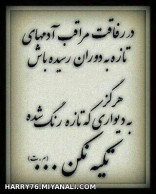 در رفاقت مراقب آدمهای
تازه به دوران رسیده باش
هرگز
به دیواری که تازه رنگ شده
تکیه نکن ...
HARRY76.MIYANALI.COM